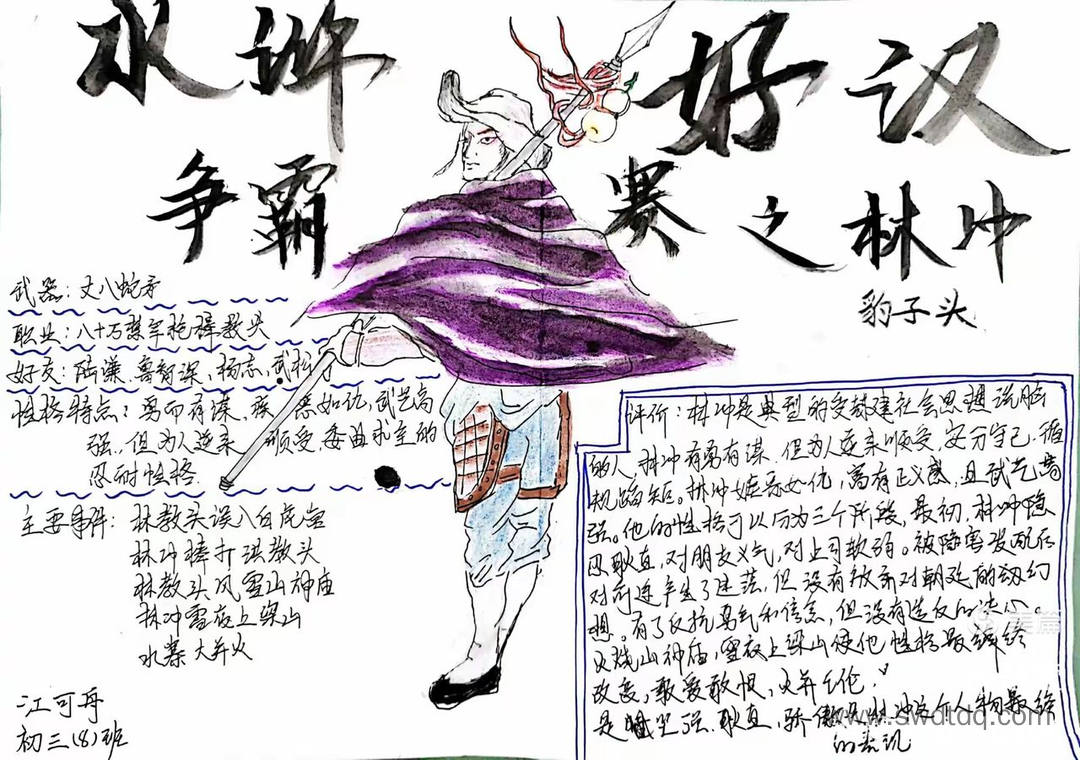 水浒 好汉
争霸赛之林冲
豹子头
武器：丈八蛇矛
职业：八十万禁军枪棒教头
好友：陆谦、鲁智深、杨志、武松
性格特点：勇而有谋，嫉恶如仇，武艺高
强，但为人逆来顺受，委曲求全的
忍耐性格.
主要事件：林教头误入白虎堂
林冲棒打洪教头
林教头风雪山神庙
林冲雪夜上梁山
水寨大并火
江可舟
初三(8)班
评价：林冲是典型的受封建社会思想洗脑
的人.林冲有勇有谋,但为人逆来顺受,安分守己.循
规蹈矩。林冲嫉恶如仇,富有正义感,且武艺高
强。他的性格可以分为三个阶段,最初,林冲隐
忍耿直,对朋友义气,对上司软弱。被陷害发配后
对前途产生了迷茫,但没有放弃对朝廷的幻
想。有了反抗勇气和信念,但没有造反的
火烧山神庙,雪夜上梁山使他性格最终
改变,敢爱敢恨,火并王伦
是 坚强.耿直,骄傲 林冲这个人物最终
的表现
美篇
www.swdtdq.com